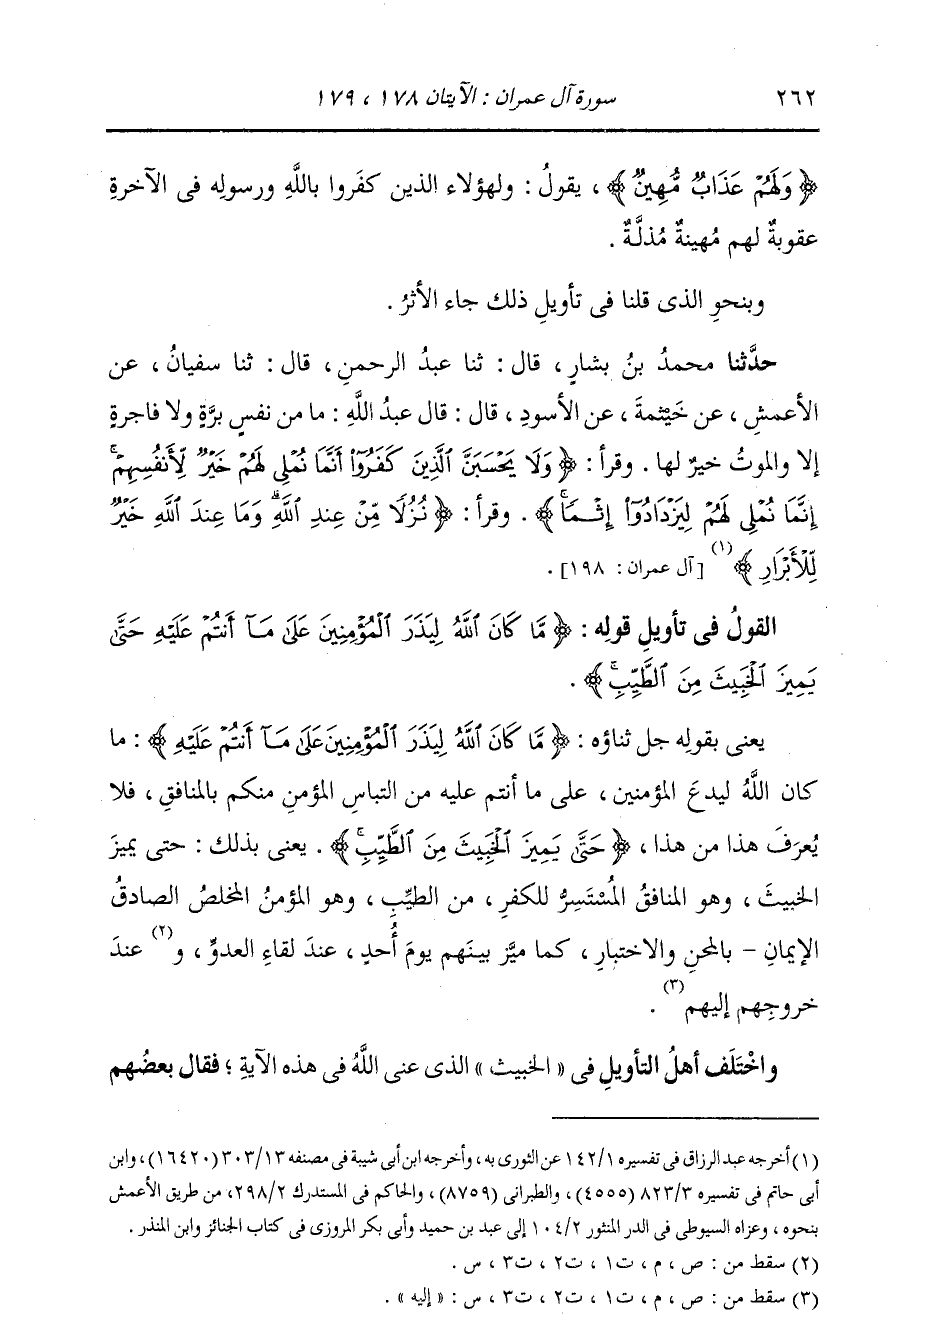 ٢٦٢ سورة آل عمران : الآيتان ١٧٨ ، ١٧٩
﴿ وَلَهُمْ عَذَابٌ مُّهِينٌ ﴾ ، يقولُ : ولهؤلاء الذين كفَروا باللَّهِ ورسولِه فى الآخرةِ
عقوبةٌ لهم مُهينةٌ مُذلَّةٌ .
وبنحوِ الذى قلنا فى تأويلِ ذلك جاء الأثرُ .
حدَّثنا محمدُ بنُ بشارٍ ، قال : ثنا عبدُ الرحمنِ ، قال : ثنا سفيانُ ، عن
الأعمشِ ، عن خَيْثمةَ ، عن الأسودِ ، قال : قال عبدُ اللَّهِ : ما من نفسٍ برَّةٍ ولا فاجرةٍ
إلا والموتُ خيرٌ لها . وقرأ : ﴿ وَلَا يَحْسَبَنَّ ٱلَّذِينَ كَفَرُوٓا۟ أَنَّمَا نُمْلِى لَهُمْ خَيْرٌ لِّأَنفُسِهِمْ ۚ
إِنَّمَا نُمْلِى لَهُمْ لِيَزْدَادُوٓا۟ إِثْـمًا ۚ ﴾ . وقرأ : ﴿ نُزُلًا مِّنْ عِندِ ٱللَّهِ ۗ وَمَا عِندَ ٱللَّهِ خَيْرٌ
لِّلْأَبْرَارِ ﴾ (١) [ آل عمران : ١٩٨] .
القولُ فى تأويلِ قولِه : ﴿ مَّا كَانَ ٱللَّهُ لِيَذَرَ ٱلْمُؤْمِنِينَ عَلَىٰ مَـآ أَنتُمْ عَلَيْهِ حَتَّىٰ
يَمِيزَ ٱلْخَبِيثَ مِنَ ٱلطَّيِّبِ ۚ ﴾ .
يعنى بقولِه جل ثناؤه : ﴿ مَّا كَانَ ٱللَّهُ لِيَذَرَ ٱلْمُؤْمِنِينَ عَلَىٰ مَـآ أَنتُمْ عَلَيْهِ ﴾ : ما
كان اللَّهُ ليدعَ المؤمنين ، على ما أنتم عليه من التباسِ المؤمنِ منكم بالمنافقِ ، فلا
يُعرَفَ هذا من هذا ، ﴿ حَتَّىٰ يَمِيزَ ٱلْخَبِيثَ مِنَ ٱلطَّيِّبِ ۚ ﴾ . يعنى بذلك : حتى يميزَ
الخبيثَ ، وهو المنافقُ المُسْتَسِرُّ للكفرِ ، من الطيِّبِ ، وهو المؤمنُ المخلصُ الصادقُ
الإيمانِ – بالمحنِ والاختبارِ ، كما ميَّز بينَهم يومَ أُحدٍ ، عندَ لقاءِ العدوِّ ، و(٢) عندَ
خروجِهم إليهم(٣) .
واخْتَلَف أهلُ التأويلِ فى « الخبيث » الذى عنى اللَّهُ فى هذه الآيةِ ؛ فقال بعضُهم
(١) أخرجه عبد الرزاق فى تفسيره ١/ ١٤٢ عن الثورى به ، وأخرجه ابن أبى شيبة فى مصنفه ١٣/ ٣٠٣ (١٦٤٢٠) ، وابن
أبى حاتم فى تفسيره ٣/ ٨٢٣ (٤٥٥٥) ، والطبرانى (٨٧٥٩) ، والحاكم فى المستدرك ٢/ ٢٩٨، من طريق الأعمش
بنحوه ، وعزاه السيوطى فى الدر المنثور ٢/ ١٠٤ إلى عبد بن حميد وأبى بكر المروزى فى كتاب الجنائز وابن المنذر .
(٢) سقط من : ص ، م ، ت١ ، ت٢ ، ت٣ ، س .
(٣) سقط من : ص ، م ، ت١ ، ت٢ ، ت٣ ، س : « إليه » .